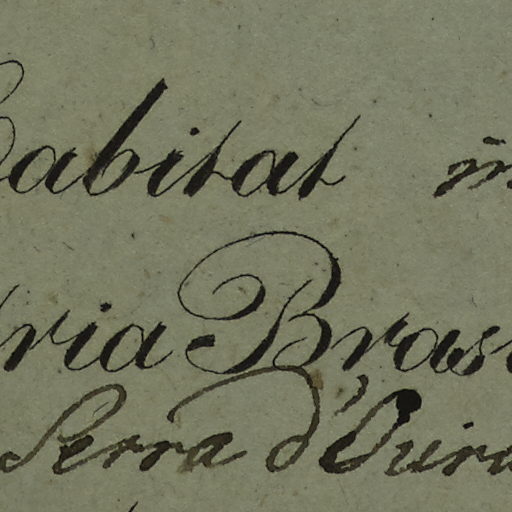 Habitat in
tria Bras
Serra d'Ouro